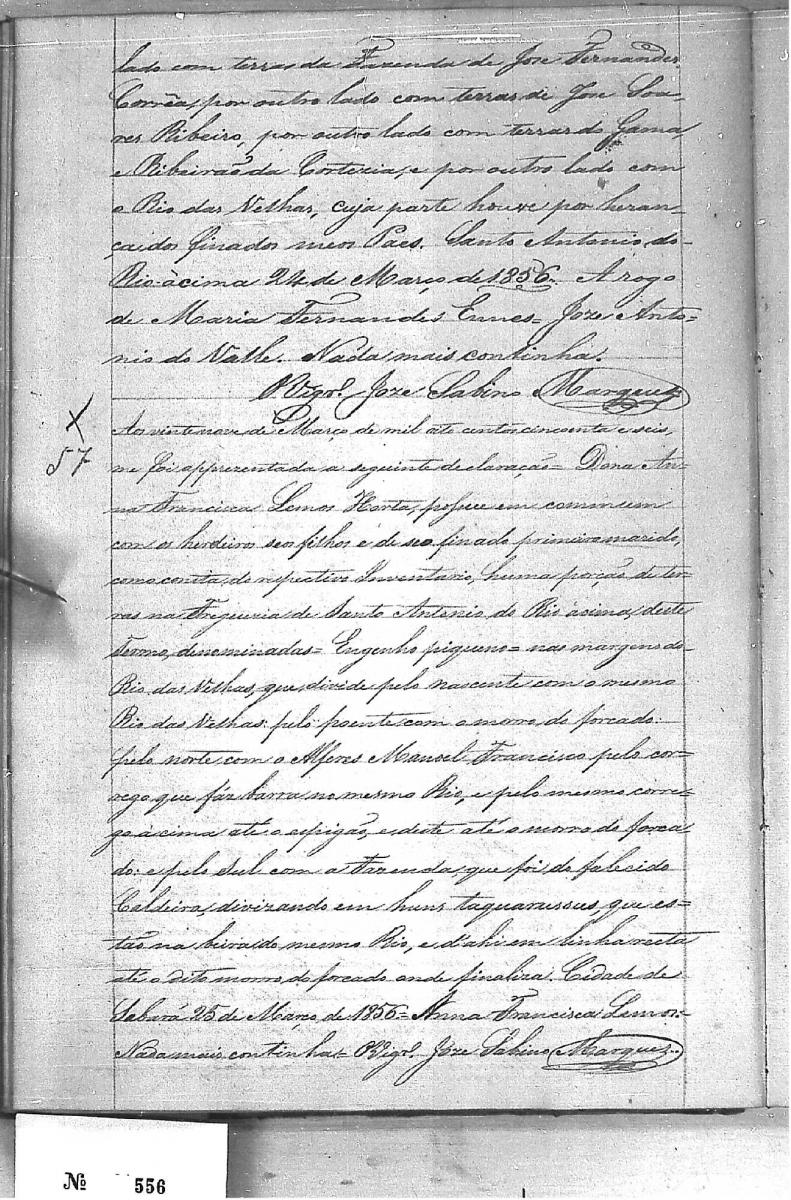 lado com terras da Fazenda de Joze Fernandes
Corrêa, por outro lado com terras de Joze Soa-
res Ribeiro, por outro lado com terras do Gama,
e Ribeirão da Cortezia, e por outro lado com
o Rio das Velhas, cuja parte houve por heran-
ça dos finados meos Paes. Santo Antonio do
Rio-àcima 24 de Março de 1856. A rogo
de Maria Fernandes Ennes= Joze Anto=
nio do Valle. Nada mais continha.
O Vigr.º Joze Sabino Marques
X
57
Aos vinte nove de Março de mil oito centos cincoenta e seis,
me foi apprezentada a seguinte declaração= Dona An-
na Francisca Lemos Horta, possue em commum
com os herdeiros seos filhos e de seo finado primeiro marido,
como consta do respectivo Inventario, huma porção de ter-
ras na Freguezia de Santo Antonio do Rio àcima, deste
Termo, denominadas= Engenho piqueno= nas margens do
Rio das Velhas, que divide pelo nascente com o mesmo
Rio das Velhas: pelo poente com o morro do forcado:
pelo norte com o Alferes Manoel Francisco pelo cor-
rego que fáz barra no mesmo Rio, e pelo mesmo corre-
go àcima até o espigão, e deste até o morro do forca-
do: e pelo Sul com a Fazenda, que foi do falecido
Caldeira, divizando em huns taquarussus, que es=
tão na beira do mesmo Rio, e d'ahi em linha recta
até o dito morro do forcado onde finaliza. Cidade de
Sabará 25 de Março de 1856= Anna Francisca Lemos=
Nada mais continha= O Vigr.º Joze Sabino Marques
Nº 556